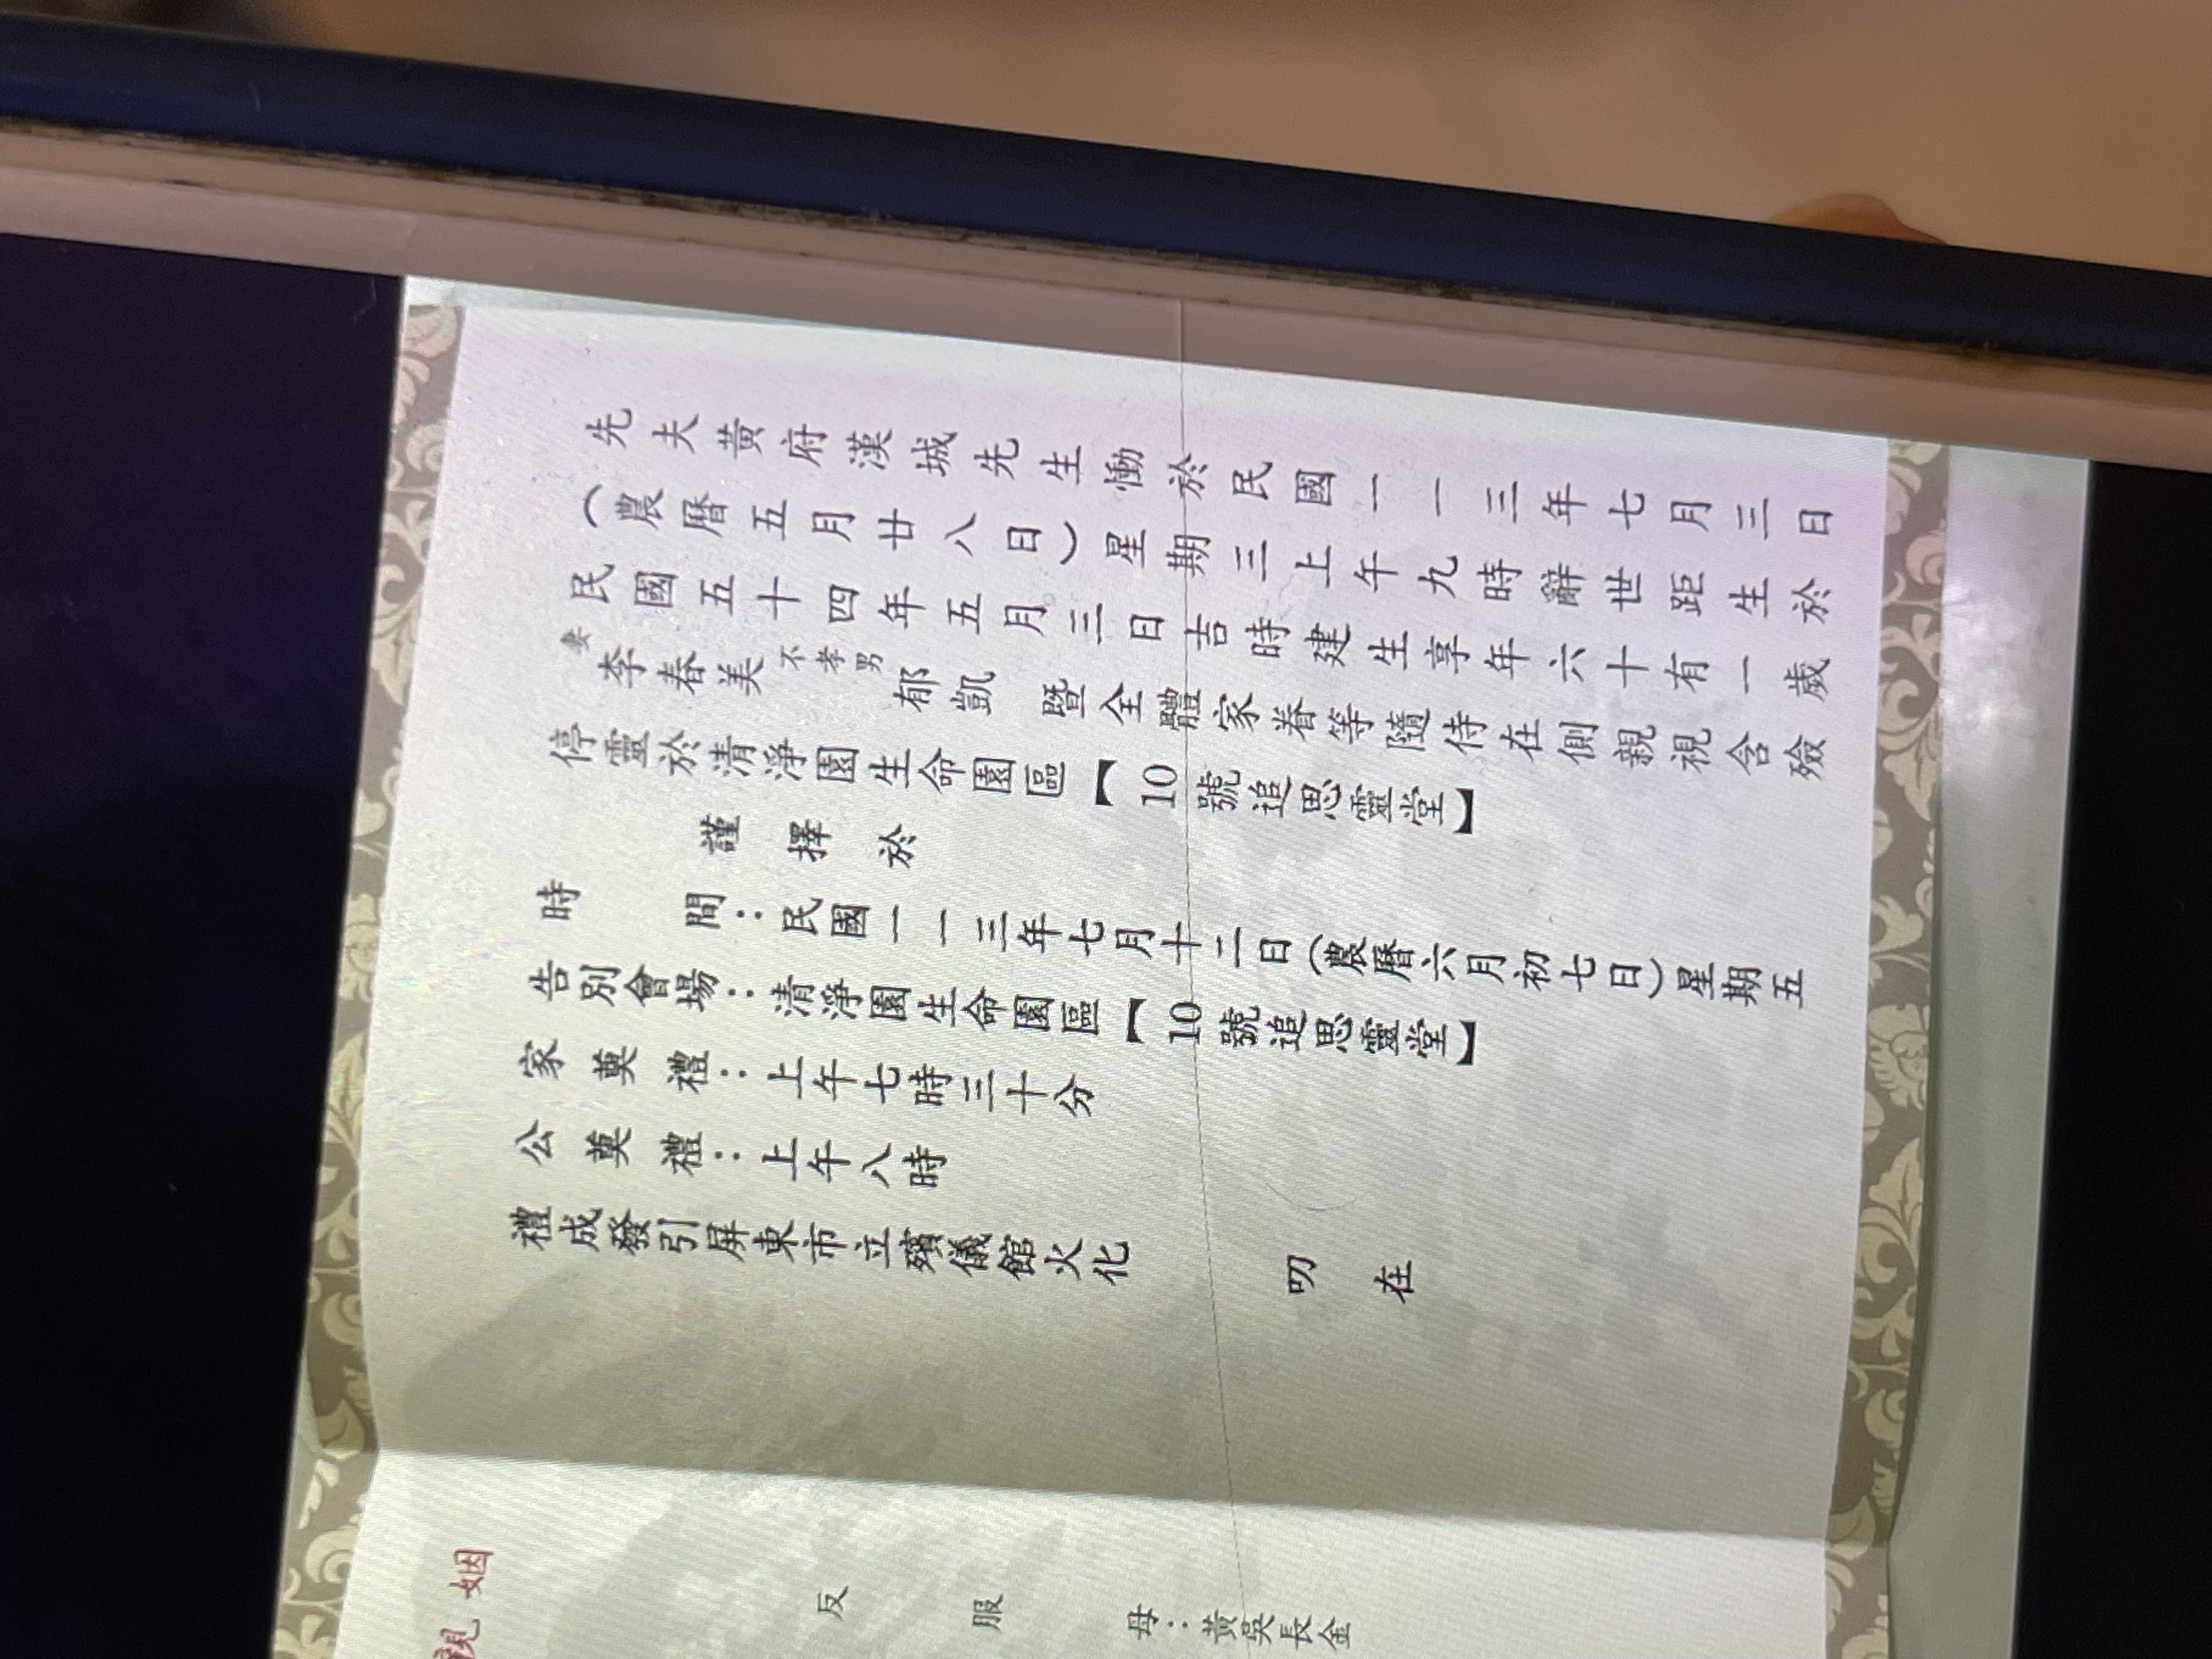 先夫黃府漢城先生慟於民國一一三年七月三日
（農曆五月廿八日）星期三上午九時辭世距生於
民國五十四年五月三日吉時建生享年六十有一歲
妻李春美不孝男郁凱暨全體家眷等隨侍在側親視含殮
停靈於清淨園生命園區【10號追思靈堂】
謹擇於
時間：民國一一三年七月十二日（農曆六月初七日）星期五
告別會場：清淨園生命園區【10號追思靈堂】
家奠禮：上午七時三十分
公奠禮：上午八時
禮成發引屏東市立殯儀館火化
叨在
姻
親
反服母：黃吳長金